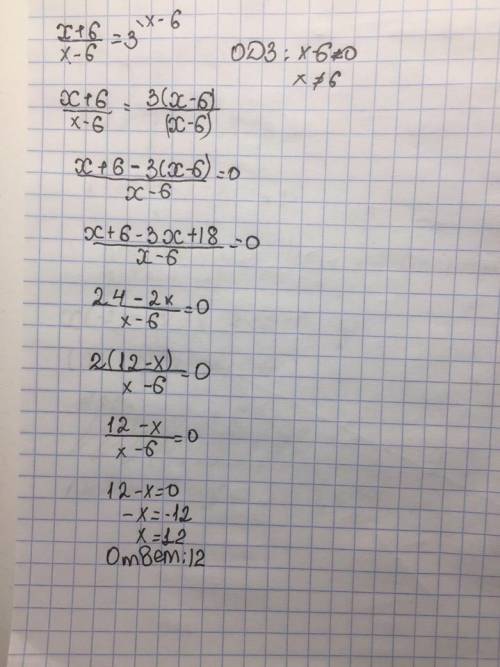 x+6/x-6 = 3 \x-6
ОДЗ: x-6≠0
x≠6
x+6/x-6 = 3(x-6)/(x-6)
x+6-3(x-6)/x-6 =0
x+6-3x+18/x-6 =0
24-2x/x-6 =0
2(12-x)/x-6 =0
12-x/x-6 =0
12-x=0
-x=-12
x=12
Ответ:12